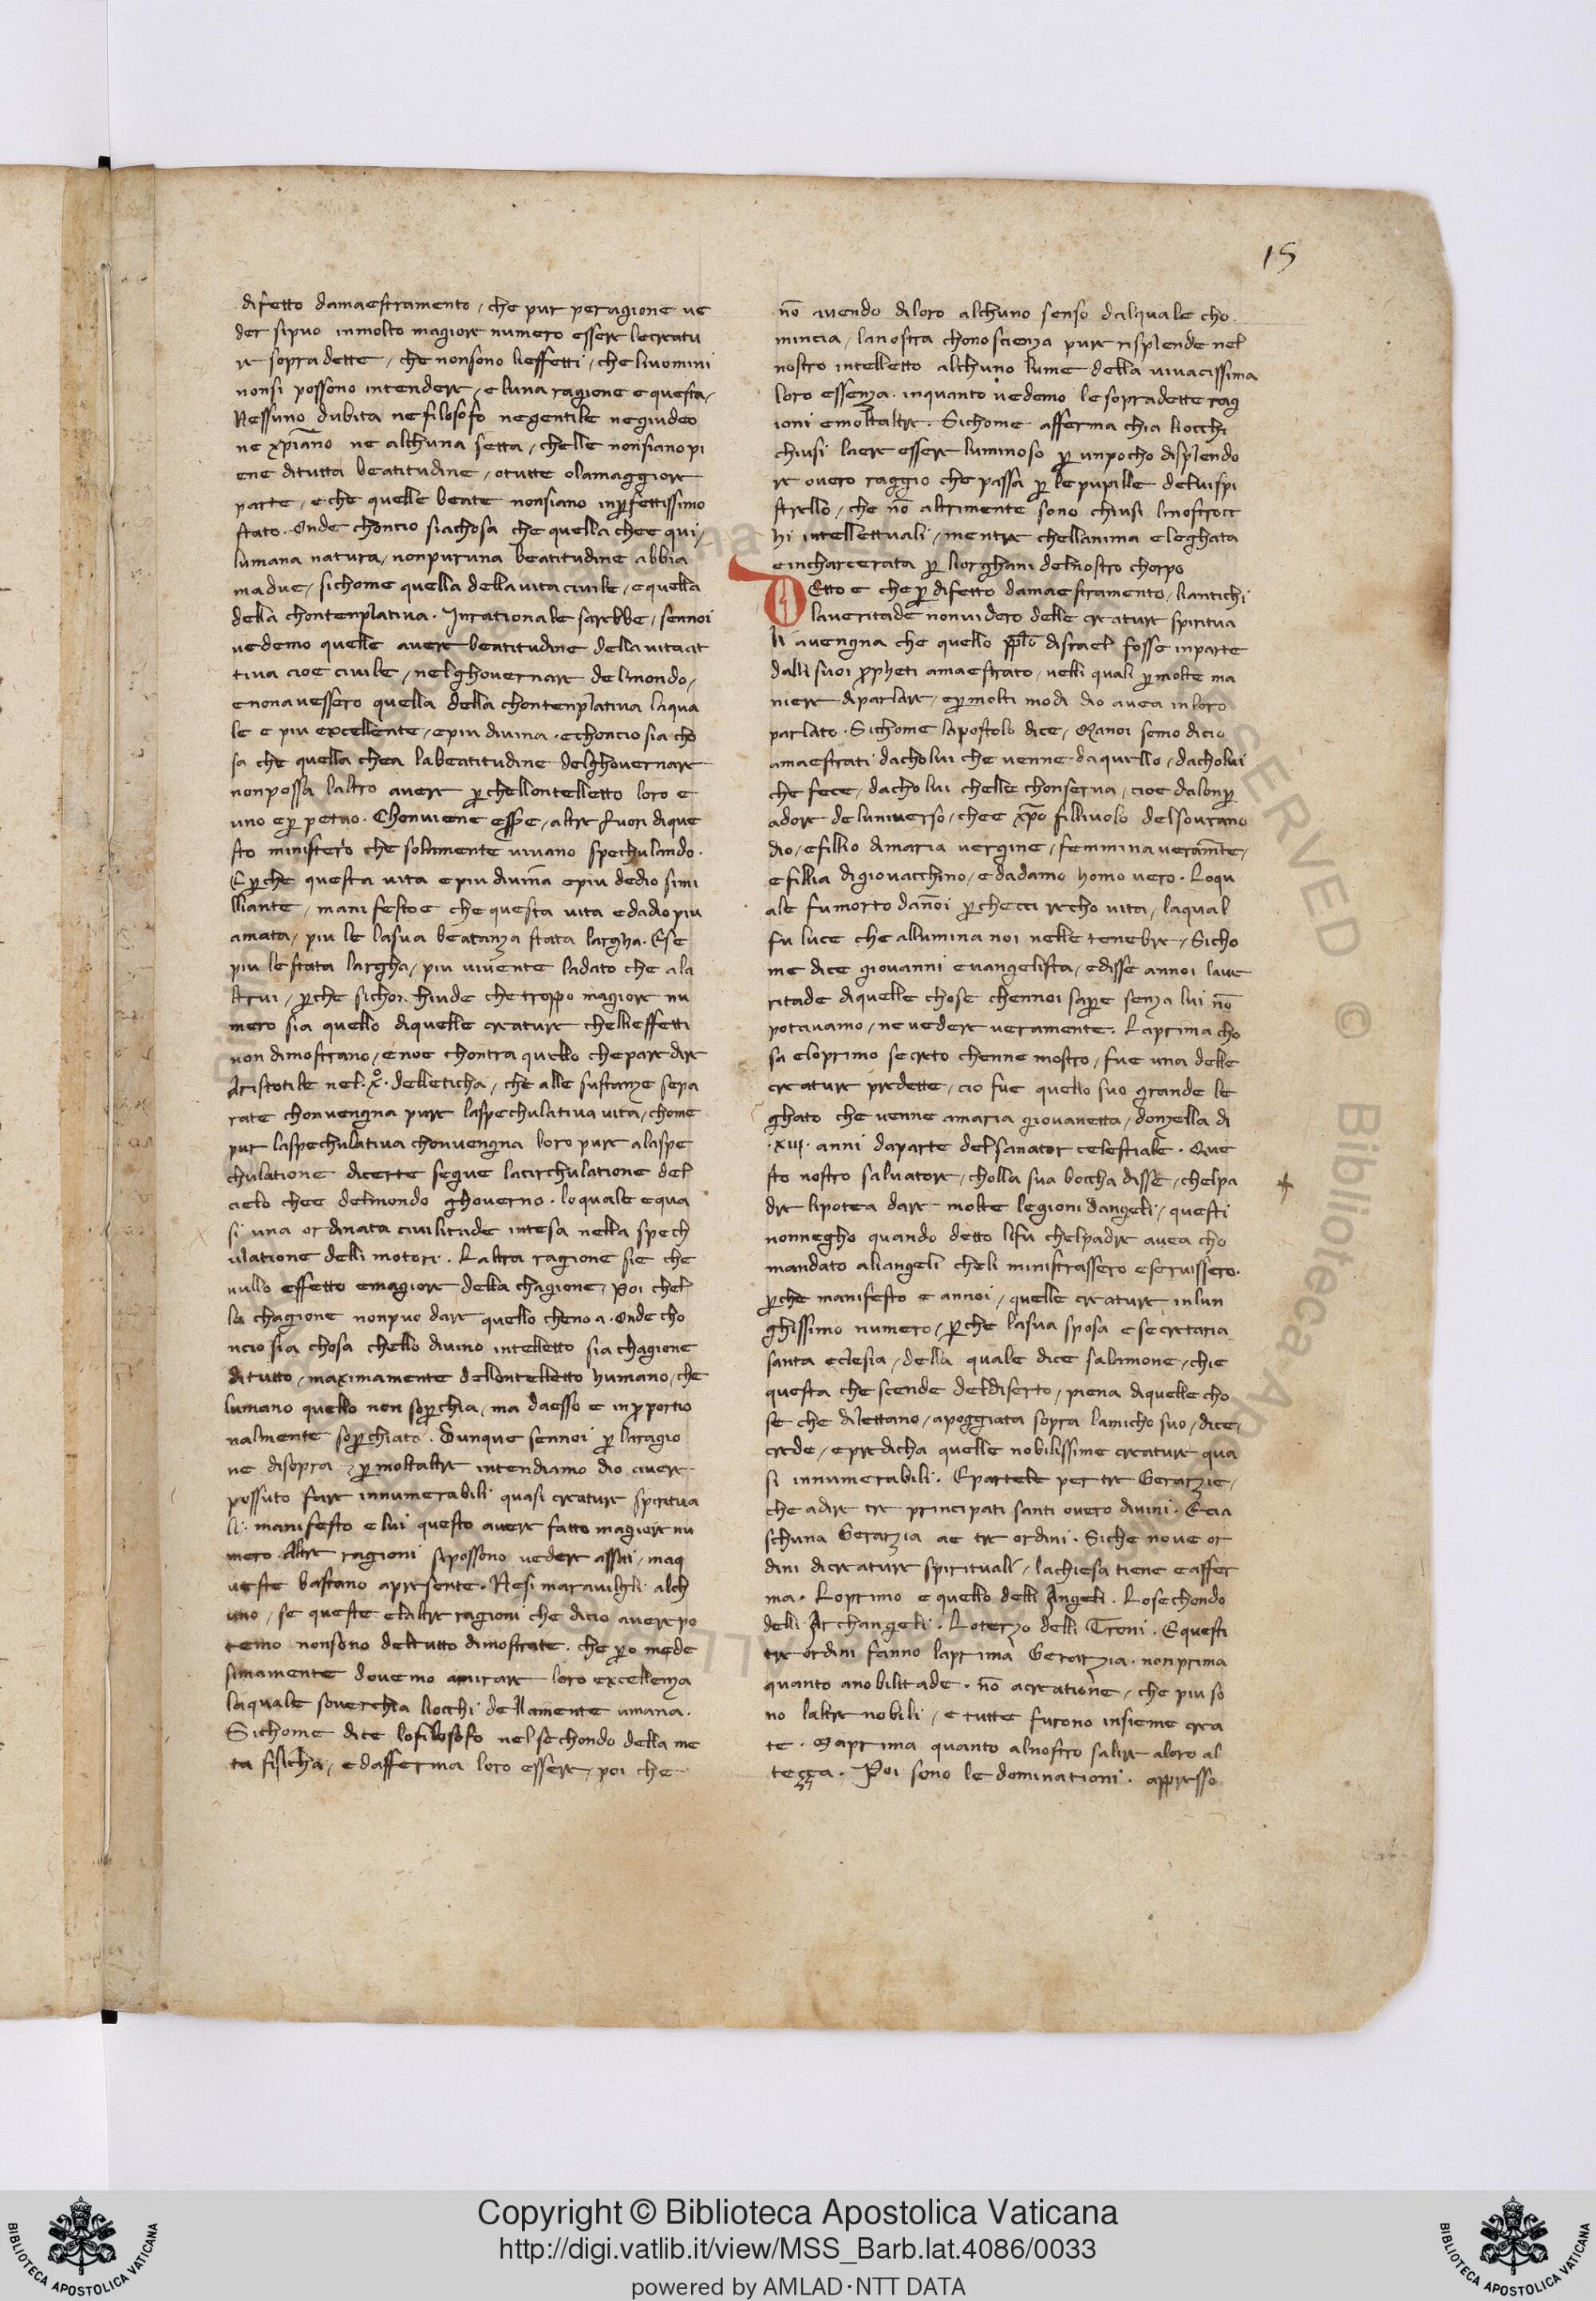 15
difetto damaestramento / che pur peragione ue
der sipuo inmolto magiore numero essere lecreatu
re sopradette / che nonsono lieffetti / che liuomini
nonsi possono intendere / e luna ragione e questa /
Nessuno dubita ne filosofo negentile negiudeo
ne xp̄iano ne alchuna setta / chelle nonsianopi
ene ditutta beatitudine / otutte olamaggiore
parte / e che quelle beate nonsiano inꝑfettissimo
stato. Onde choncio siachosa che quella chee qui /
lumana natura / nonpuruna beatitudine abbia
ma due / sichome quella dellauita ciuile / e quella
della chontenplatiua. Inrationale sarebbe / sennoi
uedemo quelle auere beatitudine della uitaat
tiua cioe ciuile / nelghouernare delmondo /
enonauessero quella della chontenplatiua laqua
le e piu excellente / epiu diuina. echoncio sia cho
sa che quella chea labeatitudine delghouernare
nonpossa laltro auere ꝑchellontelletto loro e
uno eꝑpetuo. Chonuiene esse / altre fuori dique
sto ministero che solamente uiuano spechulando.
Eꝑche questa uita e piu diuina epiu dedio simi
lliante / manifestoe che questa uita e dadio piu
amata / piu le lasua beatanza stata largha. Ese
piu le stata largha / piu uiuente ladato che ala
ltrui / ꝑche sichon hiude che troppo magiore nu
mero sia quello diquelle creature chellieffetti
non dimostrano / enoe chontra quello cheparedire
Aristotile nel .xͦ. delleticha / che alle sustanze sepa
rate chonuengna pure laspechulatiua uita / chome
pur laspechulatiua chonuengna loro pure alaspe
chulatione dicerte segue lacirchulatione del
cielo chee delmondo ghouerno. loquale equa
si una ordinata ciuilitade intesa nella spech
ulatione delli motori. Laltra ragione sie che
nullo effetto emagiore della chagione / poi chel
la chagione nonpuo dare quello cheno a. onde cho
ncio sia chosa chello diuino intelletto sia chagione
ditutto / maximamente dellontelletto humano / che
lumano quello non soꝑchia / ma daesso e inꝓportio
nalmente soꝑchiato. Dunque sennoi ꝑ laragio
ne disopra / ꝑmoltaltre intendiamo dio auere
possuto fare innumerabili quasi creature spiritua
li. manifesto e lui questo auere fatto magiore nu
mero. Altre ragioni sipossono uedere assai / maq
ueste bastano apresente. Nesi marauilgli alch
uno / se queste elaltre ragioni che dicio auerepo
temo nonsono deltutto dimostrate. che ꝑo mede
simamente douemo amirare loro excellenza
laquale souerchia liocchi dellamente umana.
Sichome dice lofilosofo nelsechondo della me
ta fisicha / edafferma loro essere / poi che
nō auendo diloro alchuno senso dalquale cho
mincia / lanostra chonoscienza pure risplende nel
nostro intelletto alchuno lume della uiuacissima
loro essenza. inquanto uedemo lesopradette rag
ioni emoltaltre. Sichome afferma chia liocchi
chiusi laere essere luminoso ꝑ unpocho displendo
re ouero raggio che passa ꝑ le pupille deluispi
strello / che nō altrimente sono chiusi linostrocc
hi intellettuali / mentre chellanima eleghata
eincharcerata ꝑ liorghani delnostro chorpo
Detto e che ꝑ difetto damaestramento / liantichi
laueritade nonuidero delle creature spiritua
li auengna che quello ppl̄o disrael fosse inparte
dalli suoi ꝓpheti amaestrato / nelli quali ꝑmolte ma
niere diparlare / eꝑmolti modi dio auea inloro
parlato. Sichome lapostolo dice / Manoi semo dicio
amaestrati dacholui che uenne daquello / dacholui
che fece / dacholui chelle chonserua / cioe dalonꝑ
adore deluniuerso / chee xp̄o filliuolo delsourano
dio / efillio dimaria uergine / femmina ueramēte /
efillia digiouacchino / edadamo homo uero. Loqu
ale fumorto dānoi ꝑchecci recho uita / laqual
fu luce che allumina noi nelle tenebre / Sicho
me dice giouanni euangelista / edisse annoi laue
ritade diquelle chose chennoi saꝑe senza lui nō
potauamo / neuedere ueramente. Laprima cho
sa eloprimo secreto chenne mostro / fue una delle
creature predette / cio fue quello suo grande le
ghato che uenne amaria giouanetta / donzella di
.xiij. anni daparte delsanator celestiale. Que
sto nostro saluatore / cholla sua boccha disse / chelpa
dre lipotea dare molte legioni dangeli / questi
nonnegho quando detto lifu chelpadre auea cho
mandato aliangeli cheli ministrassero eseruissero.
ꝑche manifesto e annoi / quelle creature inlun
ghissimo numero / ꝑche lasua sposa esecretaria
santa eclesia / della quale dice salamone / chie
questa che scende deldiserto / piena diquelle cho
se che dilettano / apoggiata sopra lamicho suo / dice /
crede / epredicha quelle nobilissime creature qua
si innumerabili. Epartele per tre Gerarzie /
che adire tre principati santi ouero diuini. Ecia
schuna Gerarzia ae tre ordini. Siche noue or
dini dicreature spirituali / lachiesa tiene eaffer
ma. Loprimo e quello delli Angeli. Losechondo
delli Archangeli. Loterzo delli Troni. Equesti
tre ordini fanno laprima Gerarzia. nonprima
quanto anobilitade. nō acreatione / che piu so
no laltre nobili / e tutte furono insieme crea
te. Maprima quanto alnostro salire aloro al
teçça. Poi sono le dominationi. appresso
Copyright © Biblioteca Apostolica Vaticana
http://digi.vatlib.it/view/MSS_Barb.lat.4086/0033
powered by AMLAD·NTT DATA
BIBLIOTECA APOSTOLICA VATICANA
BIBLIOTECA APOSTOLICA VATICANA